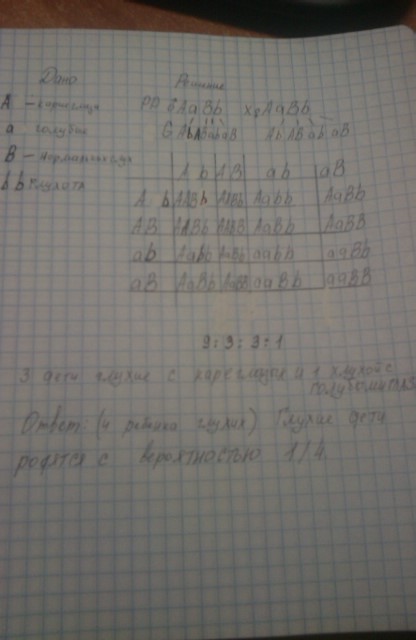 Дано
Решение
A – кареглазые
P♀ ♂ AaBb x ♀ AaBb
a голубые
G Ab AB ab aB Ab AB ab aB
B – нормальный слух
bb глухота
Ab AB ab aB
Ab AABb Aabb AaBb
AB AABb AABB AaBb AaBB
ab Aabb AaBb aabb aaBb
aB AaBb AaBB aaBb aaBB
9:3:3:1
3 дети глухие с карие глазое и 1 глухой с
голубоми глаз
Ответ: (4 ребёнка глухих) Глухие дети
родятся с вероятностью 1/4.